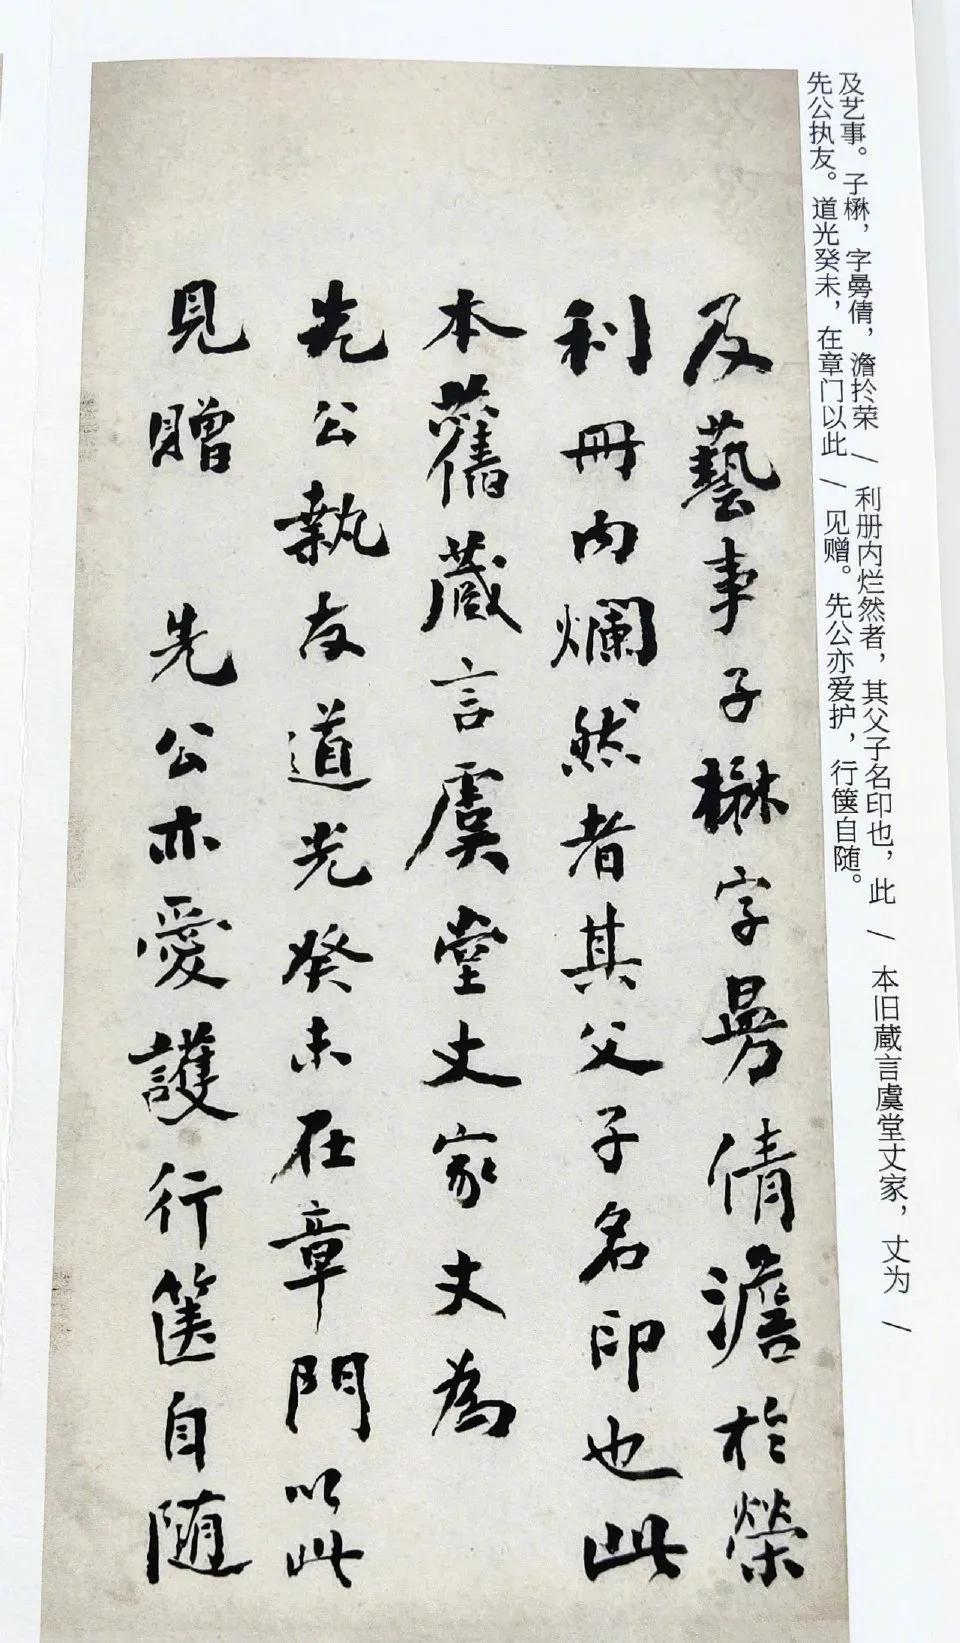 及艺事。子楙，字㬅倩，澹扵荣 / 利册内烂然者，其父子名印也，此 / 本旧蔵言虞堂丈家，丈为 /
先公执友。道光癸未，在章门以此 / 见赠。先公亦爱护，行箧自随。
及藝事子楙字㬅倩澹扵榮
利冊內爛然者其父子名印也此
本舊蔵言虞堂丈家丈為
先公執友道光癸未在章門以此
見贈 先公亦愛護行箧自随